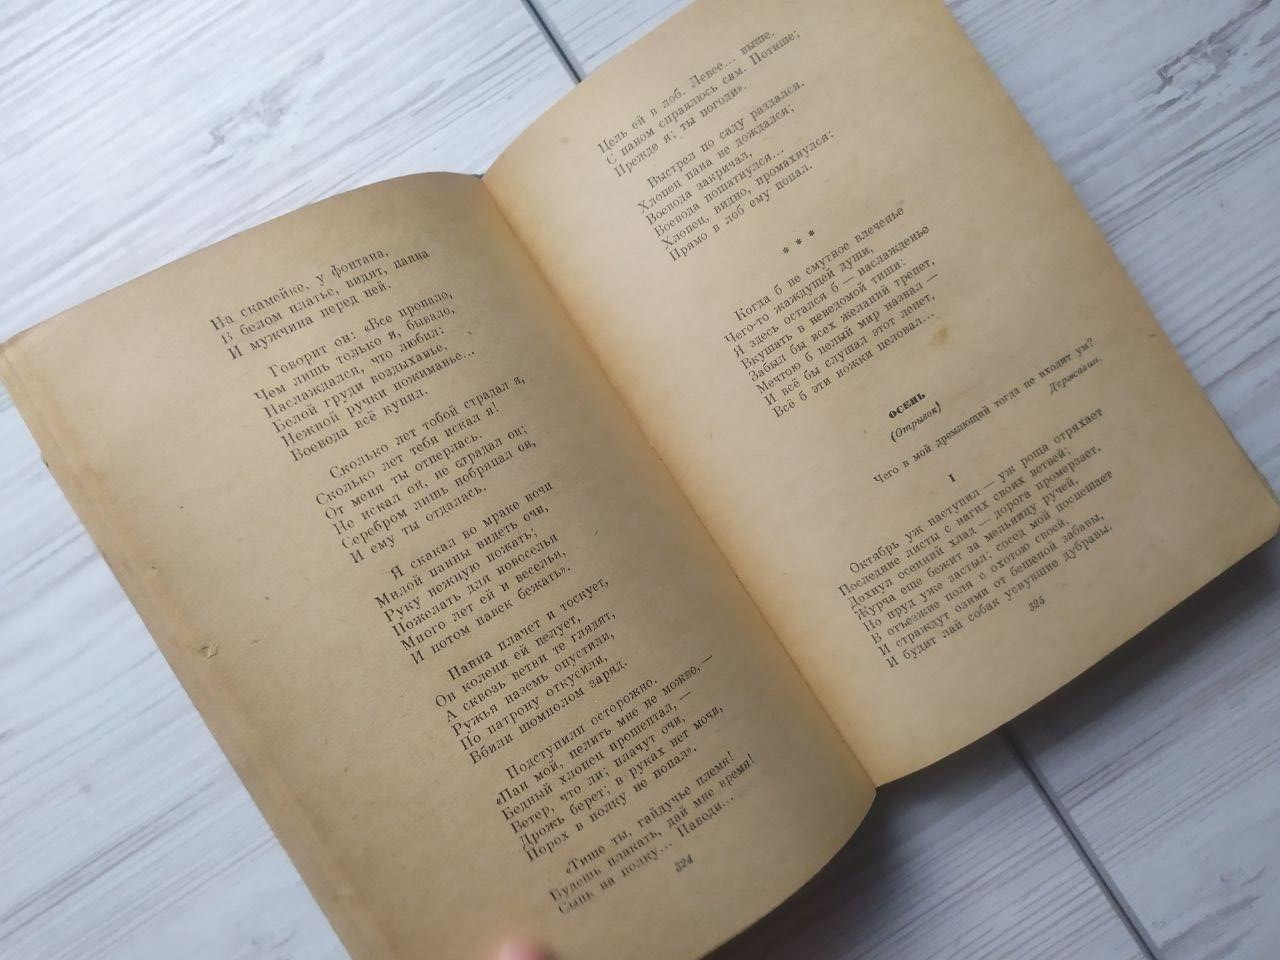 На скамейке, у фонтана,
В белом платье, видит, панна
И мужчина перед ней.
Говорит он: «Все пропало,
Чем лишь только я, бывало,
Наслаждался, что любил:
Белой груди воздыханье,
Нежной ручки пожиманье...
Воевода всё купил.
Сколько лет тобой страдал я,
Сколько лет тебя искал я!
От меня ты отперлась.
Не искал он, не страдал он;
Серебром лишь побряцал он,
И ему ты отдалась.
Я скакал во мраке ночи
Милой панны видеть очи,
Руку нежную пожать;
Пожелать для новоселья
Много лет ей и веселья,
И потом навек бежать».
Панна плачет и тоскует,
Он колени ей целует,
А сквозь ветви те глядят,
Ружья наземь опустили,
По патрону откусили,
Вбили шомполом заряд.
Подступили осторожно.
«Пан мой, целить мне не можно, —
Бедный хлопец прошептал, —
Ветер, что ли; плачут очи,
Дрожь берет; в руках нет мочи,
Порох в полку не попал».
«Тише ты, гайдучье племя!
Будешь плакать, дай мне время!
Сыпь на полку... Наводи...
324
Цель ей в лоб. Левее... выше.
С паном справлюсь сам. Потише;
Прежде я; ты погоди».
Выстрел по саду раздался.
Хлопец пана не дождался;
Воевода закричал,
Воевода пошатнулся...
Хлопец, видно, промахнулся:
Прямо в лоб ему попал.
* * *
Когда б не смутное влеченье
Чего-то жаждущей души,
Я здесь остался б — наслажденье
Вкушать в неведомой тиши:
Забыл бы всех желаний трепет,
Мечтою б целый мир назвал —
И всё бы слушал этот лепет,
Всё б эти ножки целовал...
ОСЕНЬ
(Отрывок)
Чего в мой дремлющий тогда не входит ум?
Державин.
I
Октябрь уж наступил — уж роща отряхает
Последние листы с нагих своих ветвей;
Дохнул осенний хлад — дорога промерзает.
Журча еще бежит за мельницу ручей,
Но пруд уже застыл; сосед мой поспешает
В отъезжие поля с охотою своей,
И страждут озими от бешеной забавы,
И будит лай собак уснувшие дубравы.
325